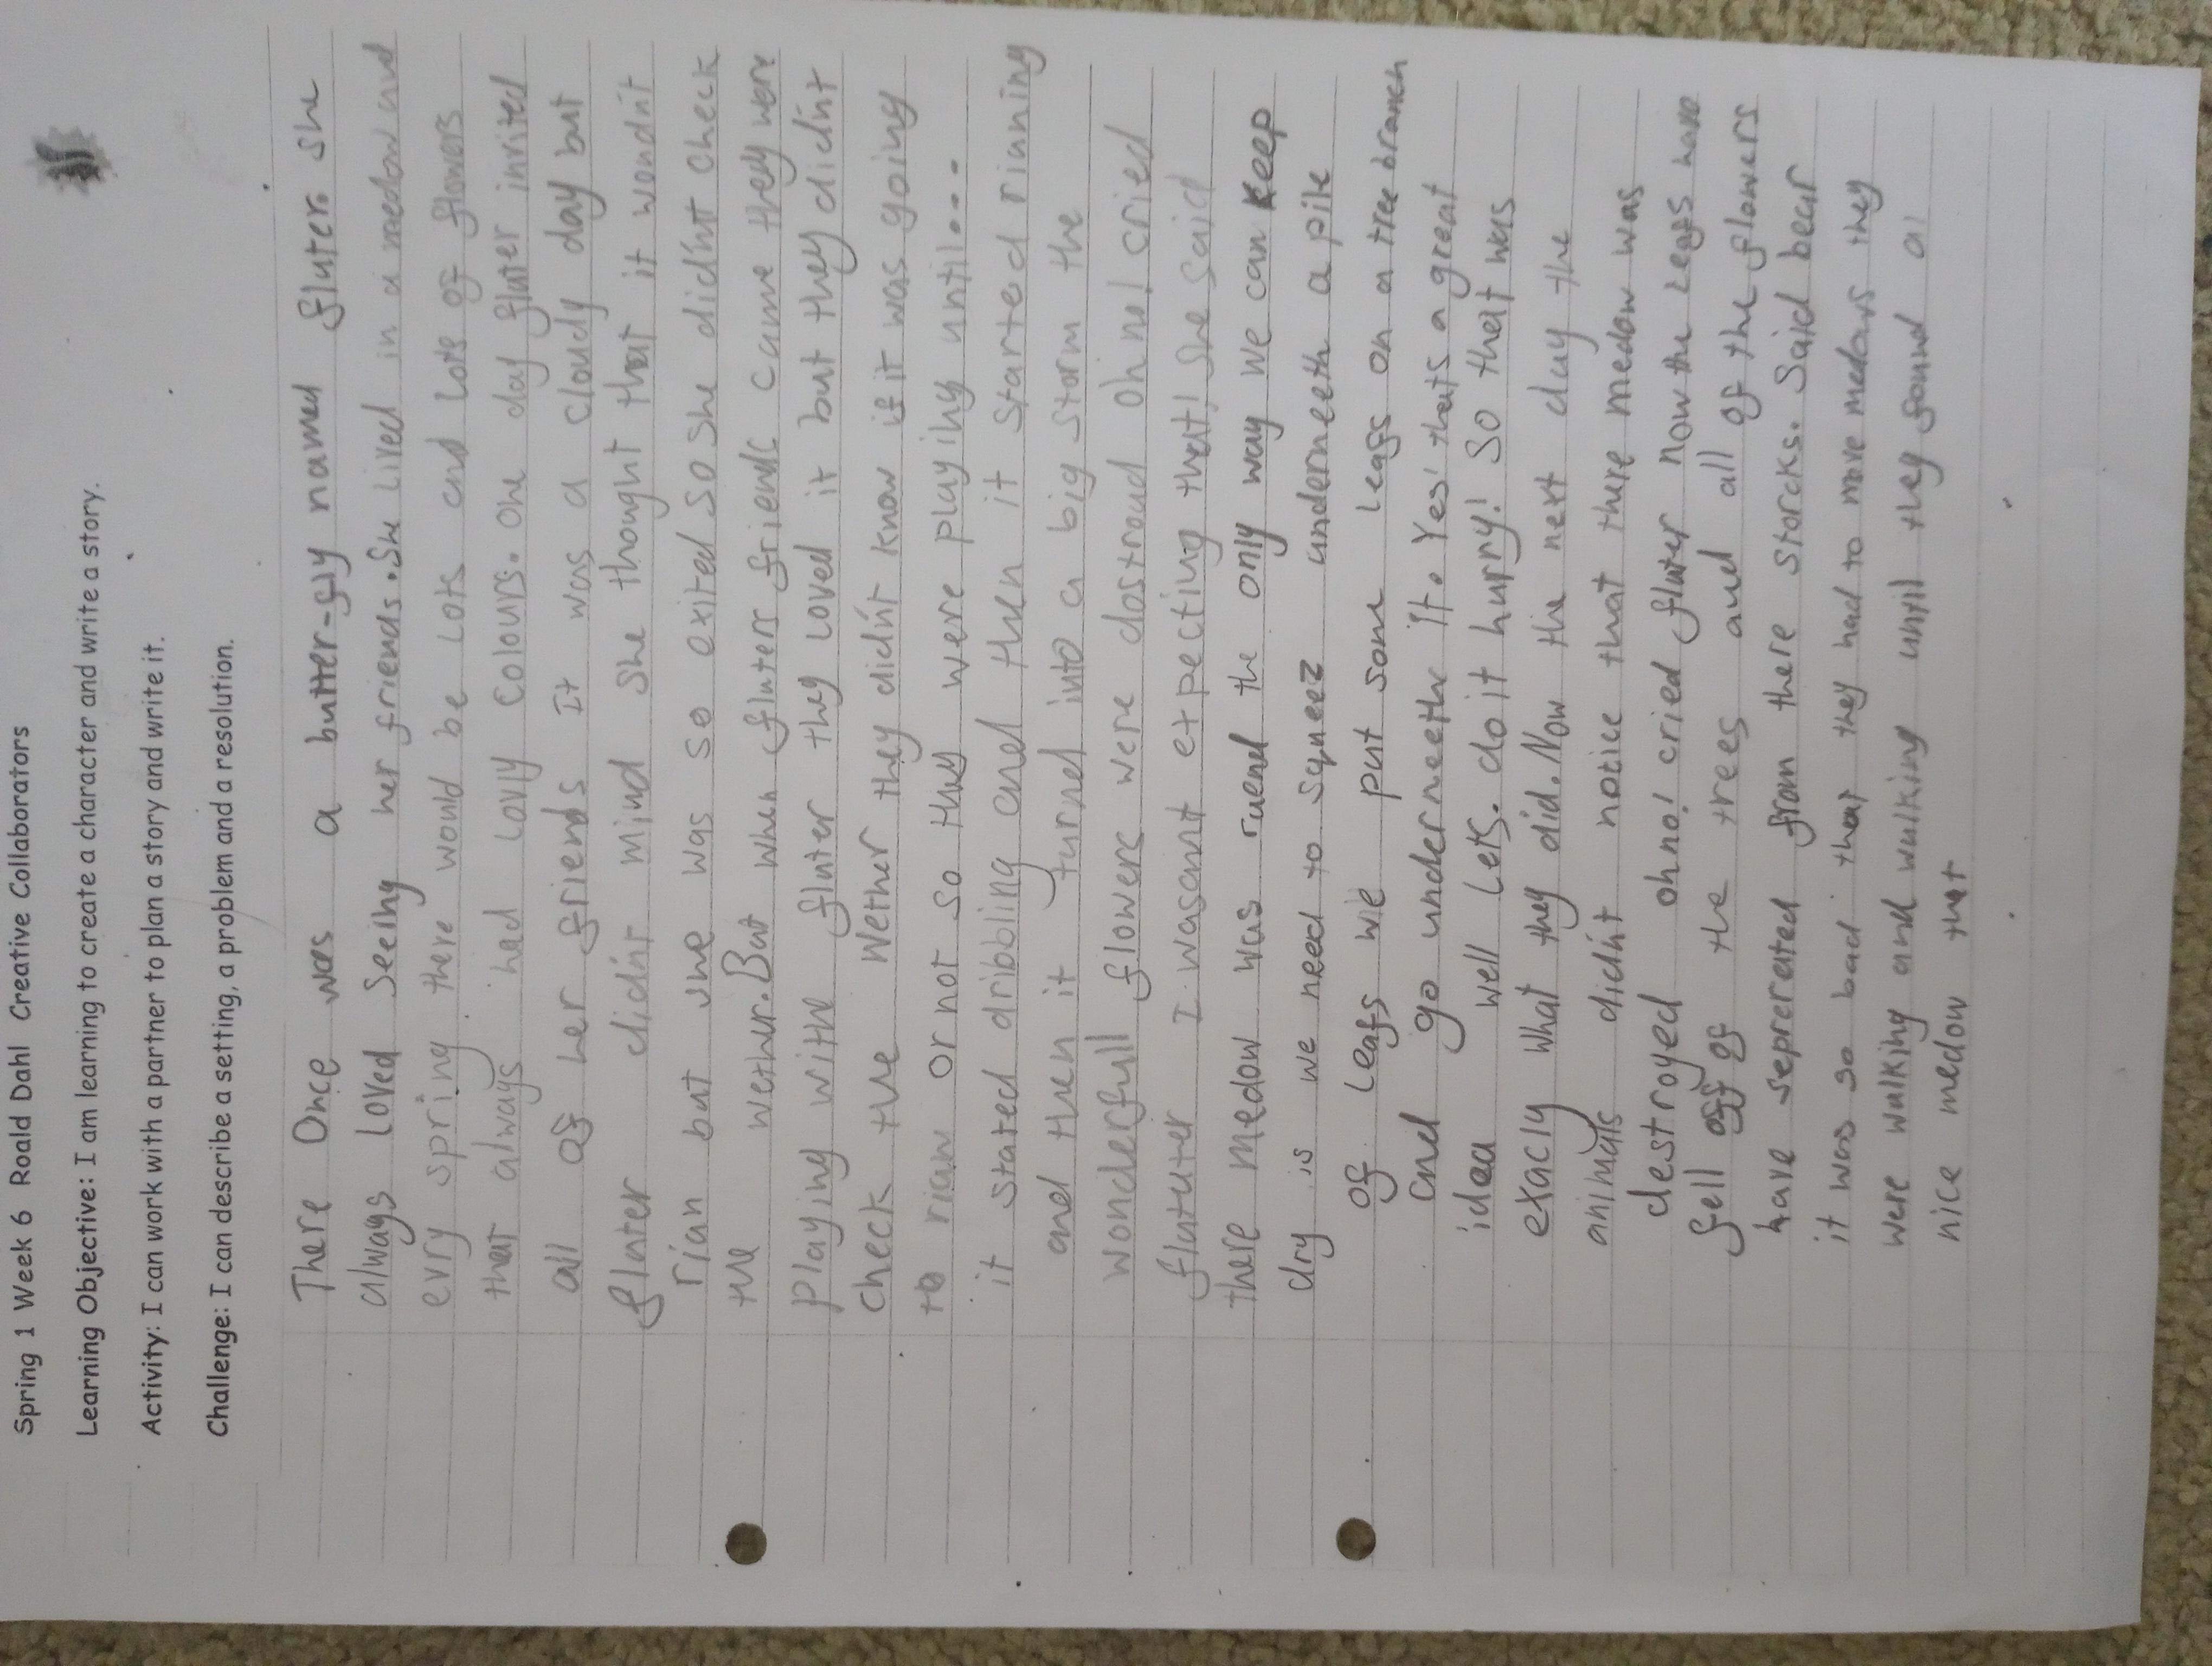 Spring 1 Week 6 Roald Dahl Creative Collaborators
Learning Objective: I am learning to create a character and write a story.
Activity: I can work with a partner to plan a story and write it.
Challenge: I can describe a setting, a problem and a resolution.
There Once was a butter-fly named fluter. She
always loved seeing her friends. She lived in a medow and
evry spring there would be lots and lots of flowers
that always had lovly colours. one day fluter invited
all of her friends It was a cloudy day but
fluter didn't mind she thought that it wondn't
rian but she was so exited so she didn't check
the wethur. But when fluters friends came they were
playing with fluter they loved it but they didn't
check the wether they didn't know if it was going
to rian or not so they were playing until....
it stated dribbling and then it started rianning
and then it turned into a big storm the
wonderfull flowers were dostroud oh no! cried
fluter I wasant expecting that! she said
there medow was ruend the only way we can keep
dry is we need to squeez underneeth a pile
of leafs we put some leafs on a tree branch
and go underneethe it. Yes! thats a great
idea well lets. do it hurry! So that was
exacly what they did. Now the next day the
animals didn't notice that there medow was
destroyed oh no! cried fluter now the leafs have
fell off of the trees and all of the flowers
have seprerated from there storcks. Said bear
it was so bad that they had to move medows they
were walking and walking until they found a
nice medow that